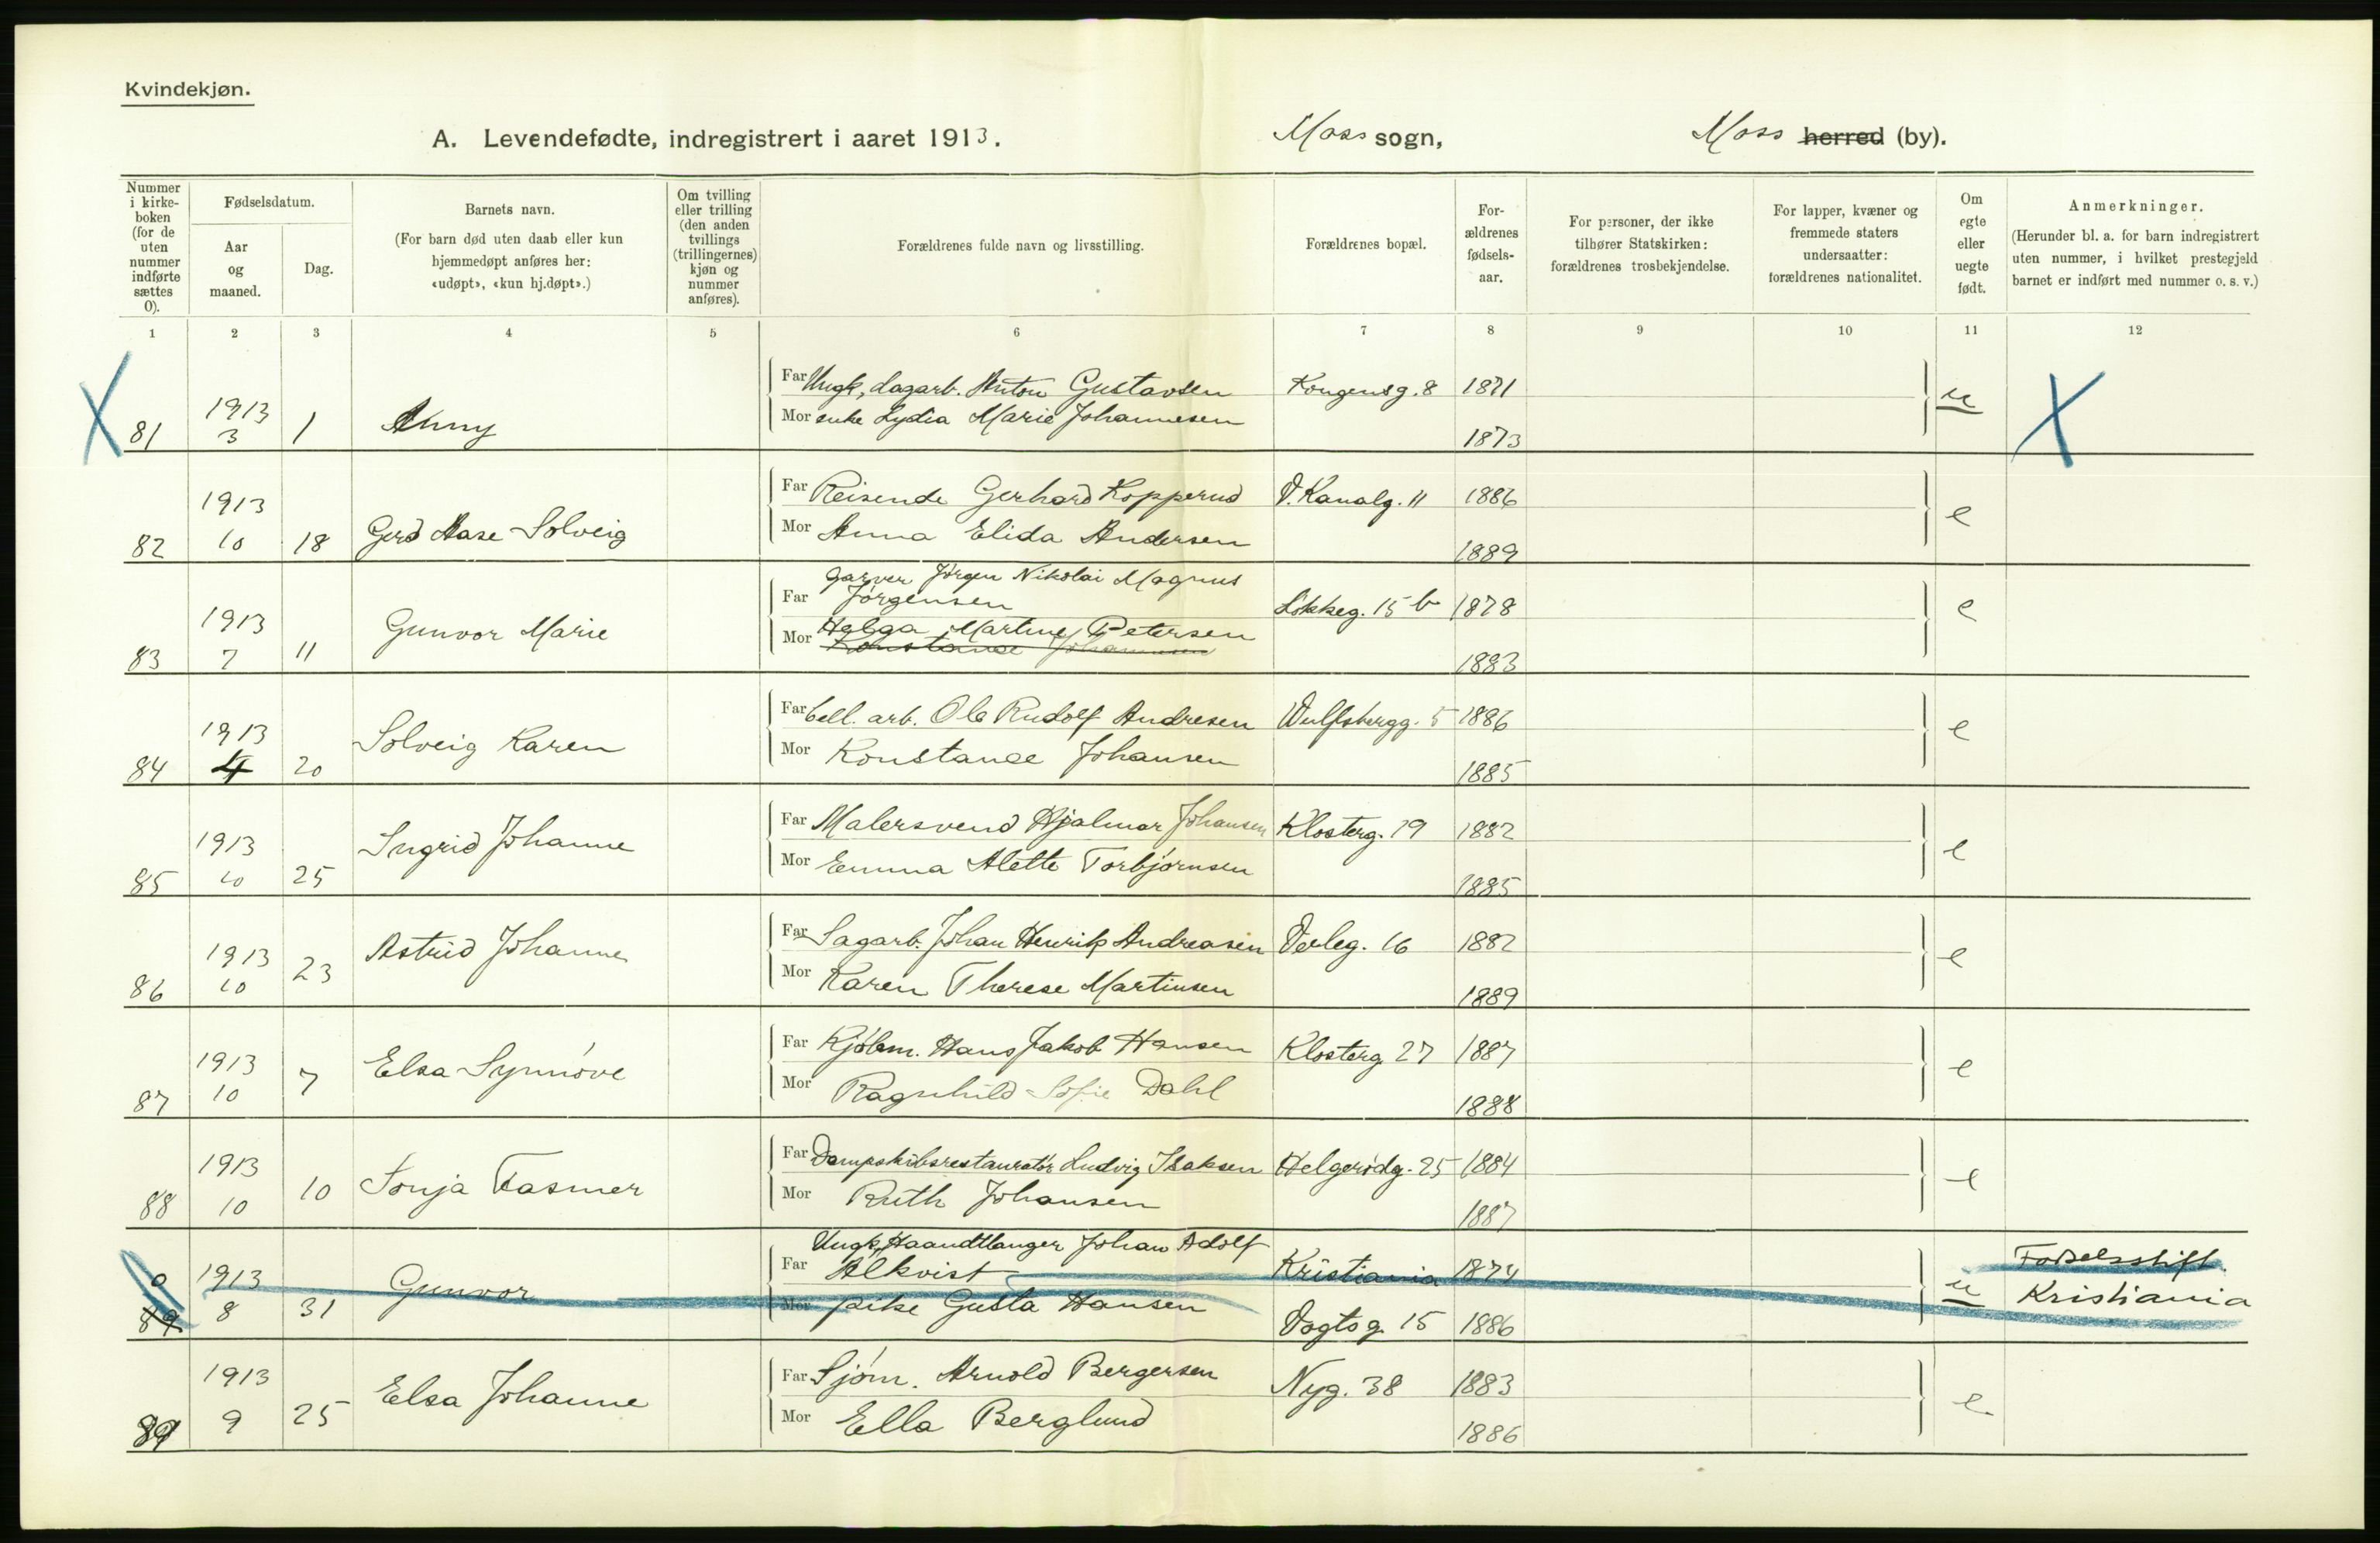 Kvindekjøn.
A. Levendefødte, indregistrert i aaret 1913. Moss sogn, Moss herred (by).
Nummer i kirke-boken (for de uten nummer indførte sættes 0).
Fødselsdatum.
Aar og maaned.
Dag.
Barnets navn.
(For barn død uten daab eller kun hjemmedøpt anføres her: «udøpt», «kun hj.døpt».)
Om tvilling eller trilling (den anden tvillings (trillingernes) kjøn og nummer anføres).
Forældrenes fulde navn og livsstilling.
Forældrenes bopæl.
For-ældrenes fødsels-aar.
For personer, der ikke tilhører Statskirken: forældrenes trosbekjendelse.
For lapper, kvæner og fremmede staters undersaatter: forældrenes nationalitet.
Om egte eller uegte født.
Anmerkninger.
(Herunder bl. a. for barn indregistrert uten nummer, i hvilket prestegjeld barnet er indført med nummer o. s. v.)
1 2 3 4 5 6 7 8 9 10 11 12
X 81 1913 3 1 Anny
Far Ungk, dagarb. Anton Gustavsen Kongensg. 8 1871 u X
Mor enke Lydia Marie Johannesen 1873
82 1913 10 18 Gerd Aase Solveig
Far Reisende Gerhard Kopperud V. Kanalg. 11 1886 e
Mor Anna Elida Andersen 1889
83 1913 7 11 Gunvor Marie
Far Garver Jørgen Nikolai Magnus
Jørgensen Løkkeg. 15 b 1878 e
Mor Helga Martine Petersen
Konstance Johannesen 1883
84 1913 4 20 Solveig Karen
Far Cell. arb. Ole Rudolf Andresen Wulfsbergg. 5 1886 e
Mor Konstance Johansen 1885
85 1913 10 25 Ingrid Johanne
Far Malersvend Hjalmar Johansen Klosterg. 19 1882 e
Mor Emma Alette Torbjørnsen 1885
86 1913 10 23 Astrid Johanne
Far Sagarb. Johan Henrik Andreasen Verleg. 16 1882 e
Mor Karen Therese Martinsen 1889
87 1913 10 7 Elsa Synnøve
Far Kjølm. Hans Jakob Hansen Klosterg. 27 1887 e
Mor Ragnhild Sofie Dahl 1888
88 1913 10 10 Sonja Tasmer
Far Dampskibsrestauratør Ludvig Isaksen Helgerødg. 25 1884 e
Mor Ruth Johansen 1887
0 89 1913 8 31 Gunvor
Far Ungk, Haandtlanger Johan Adolf
Alkvist Kristiania 1874 u Fødselsstift.
Mor pike Gusta Hansen Vogtsg. 15 1886 Kristiania
89 1913 9 25 Elsa Johanne
Far Sjøm. Arnold Bergersen Nyg. 38 1883 e
Mor Ella Berglund 1886